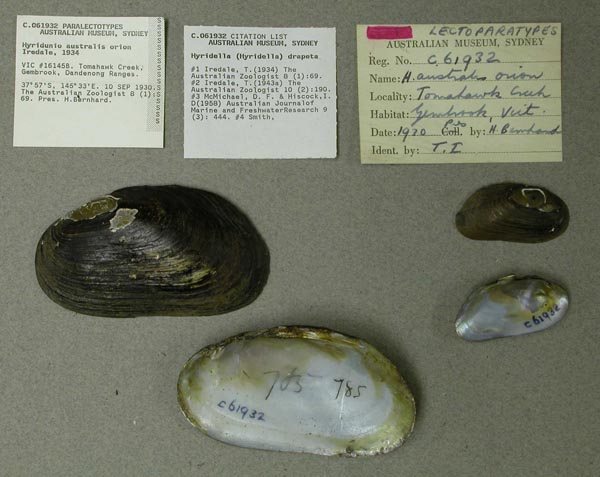 C.061932 PARALECTOTYPES
AUSTRALIAN MUSEUM, SYDNEY
Hyridunio australis orion
Iredale, 1934
VIC #161458. Tomahawk Creek,
Gembrook, Dandenong Ranges.
37^57'S, 145^33'E. 10 SEP 1930.
The Australian Zoologist 8 (1):
69. Pres. H.Bernhard.
C.061932 CITATION LIST
AUSTRALIAN MUSEUM, SYDNEY
Hyridella (Hyridella) drapeta
#1 Iredale, T.(1934) The
Australian Zoologist 8 (1):69.
#2 Iredale, T.(1943a) The
Australian Zoologist 10 (2):190.
#3 McMichael, D. F. & Hiscock,I.
D(1958) Australian Journalof
Marine and FreshwaterResearch 9
(3): 444. #4 Smith,
LECTOPARATYPES
AUSTRALIAN MUSEUM, SYDNEY
Reg. No. C61932
Name: H. australis orion
Locality: Tomahawk Creek
Habitat: Gembrook, Vict.
Date: 1930 Coll. Pres by: H. Bernhard
Ident. by: T. I
C61932
785 785
C61932